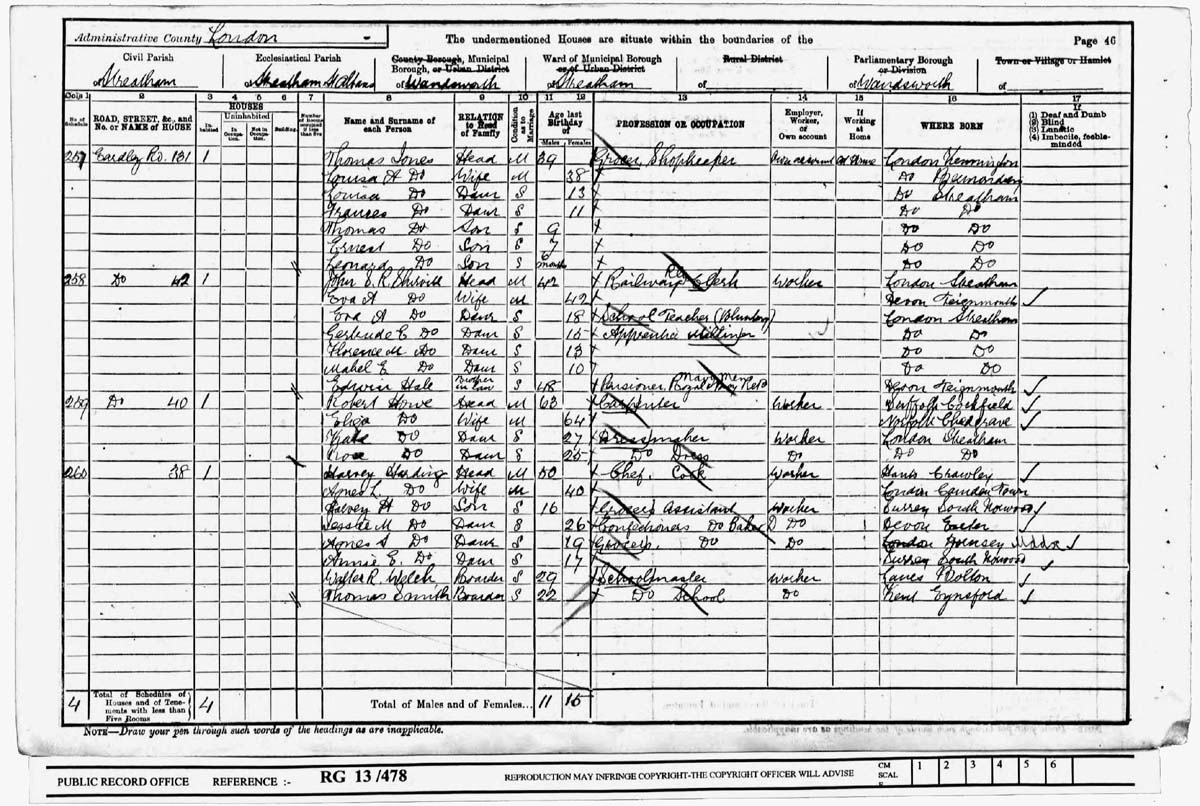 Administrative County London
The undermentioned Houses are situate within the boundaries of the
Page 46
Civil Parish
of Streatham
Ecclesiastical Parish
of Streatham
County Borough, Municipal
Borough, or Urban District
of Wandsworth
Ward of Municipal Borough
or of Urban District
of Streatham
Rural District
of
Parliamentary Borough
or Division
of Wandsworth
Town or Village or Hamlet
of
Cols 1 2 3 4 5 6 7 8 9 10 11 12 13 14 15 16 17
No. of Schedule
ROAD, STREET, &c., and No. or NAME of HOUSE
HOUSES
Inhabited
Uninhabited
In Occupation.
Not in Occupation.
Building.
Number of Rooms occupied if less than five
Name and Surname of each Person
RELATION to Head of Family
Condition as to Marriage
Age last Birthday of
Males Females
PROFESSION OR OCCUPATION
Employer, Worker, or Own account
If Working at Home
WHERE BORN
If
(1) Deaf and Dumb
(2) Blind
(3) Lunatic
(4) Imbecile, feeble-minded
257 Eardley Rd. 131 1 Thomas Jones Head M 39 Grocer Shopkeeper Own account At Home London Kennington
Louisa A Do Wife M 38 Do Bermondsey
Louisa Do Daur S 13 Do Streatham
Frances Do Daur S 11 Do Do
Thomas Do Son S 9 Do Do
Ernest Do Son S 7 Do Do
Leonard Do Son S 6 months Do Do
258 Do 42 1 John S. R. Head M 42 Railway Clerk Worker London Streatham
Eva A Do Wife M 42 Devon Teignmouth
Eva A Do Daur S 18 School Teacher (Voluntary) London Streatham
Gertrude E Do Daur S 15 Apprentice Milliner Do Do
Florence M Do Daur S 13 Do Do
Mabel E Do Daur S 10 Do Do
Edwin Hale Brother in law S 48 Pensioner, Royal Devon Teignmouth
259 Do 40 1 Robert Howe Head M 63 Carpenter Worker Suffolk Cockfield
Eliza Do Wife M 64 Norfolk Chedgrave
Kate Do Daur S 27 Dressmaker Worker London Streatham
Rose Do Daur S 25 Do Dress Do Do Do
260 38 1 Harvey Harding Head M 50 Chef. Cook Worker Hants Crawley
Agnes L. Do Wife M 40 London Camden Town
Harvey H Do Son S 16 Grocers Assistant Worker Surrey South Norwood
Jessie M Do Daur S 26 Confectioners Do Baker Do Devon Exeter
Agnes S Do Daur S 19 Grocers. Do Do London Hornsey Middx
Annie E. Do Daur S 17 Surrey South Norwood
Walter R. Welch Boarder S 29 Schoolmaster Worker Lancs Bolton
Thomas Smith Boarder S 22 Do School Do Kent Eynsford
4 Total of Schedules of Houses and of Tenements with less than Five Rooms 4 Total of Males and of Females... 11 15
NOTE—Draw your pen through such words of the headings as are inapplicable.
PUBLIC RECORD OFFICE REFERENCE :- RG 13/478 REPRODUCTION MAY INFRINGE COPYRIGHT-THE COPYRIGHT OFFICER WILL ADVISE CM SCALE 1 2 3 4 5 6